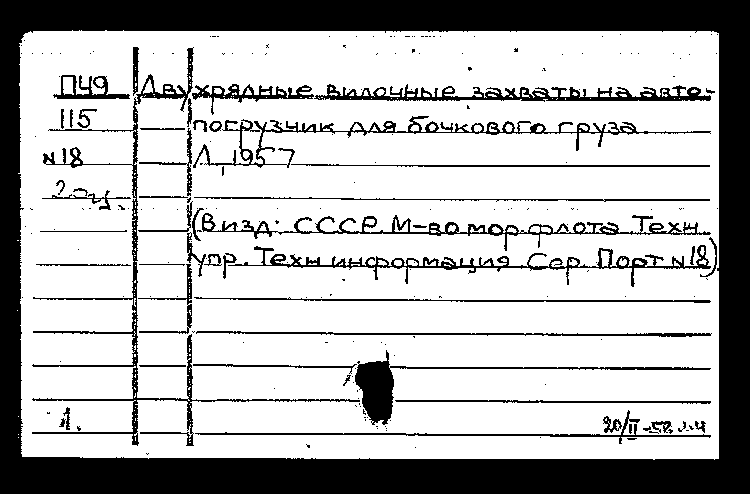 П49 Двухрядные вилочные захваты на авто-
115 погрузчик для бочкового груза.
N18 Л., 1957
2 оц.
(В изд: СССР. М-во мор. флота. Техн.
упр. Техн информация Сер. Порт N18)
1.
20/II-58